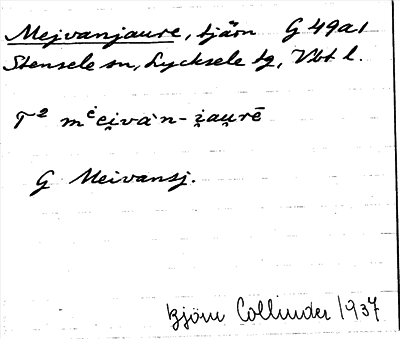 Mejvanjaure, tjärn G 49a1
Stensele sn, Lycksele tg, Vbt l.
T² mei̯va·n-i̯au̯rē
G Meivansj.
Björn Collinder 1937